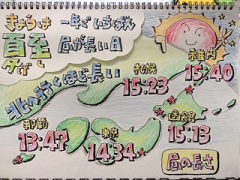 きょうは
夏至
一年でいちばん
昼が長い日
北へ行くほど長い
稚内
15:40
札幌
15:23
函館
15:13
東京
14:34
那覇
13:47
昼の長さ